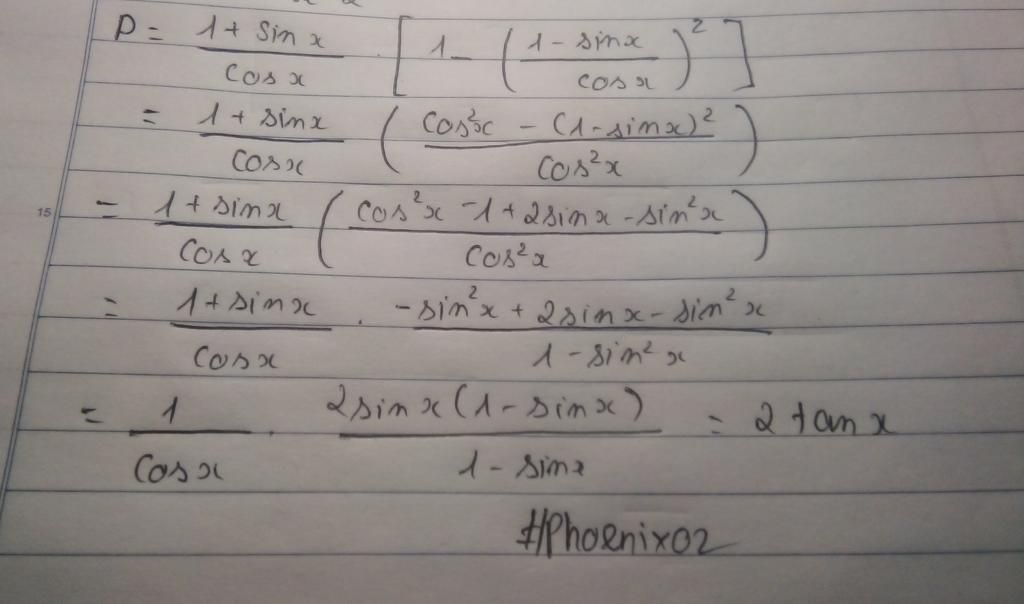 P = 1 + sin x / cos x · [1 - (1 - sin x / cos x)²]
= 1 + sin x / cos x (cos²x - (1 - sin x)² / cos²x)
15 = 1 + sin x / cos x (cos²x - 1 + 2 sin x - sin²x / cos²x)
= 1 + sin x / cos x · -sin²x + 2 sin x - sin²x / 1 - sin²x
= 1 / cos x · 2 sin x (1 - sin x) / 1 - sin x = 2 tan x
#Phoenix02